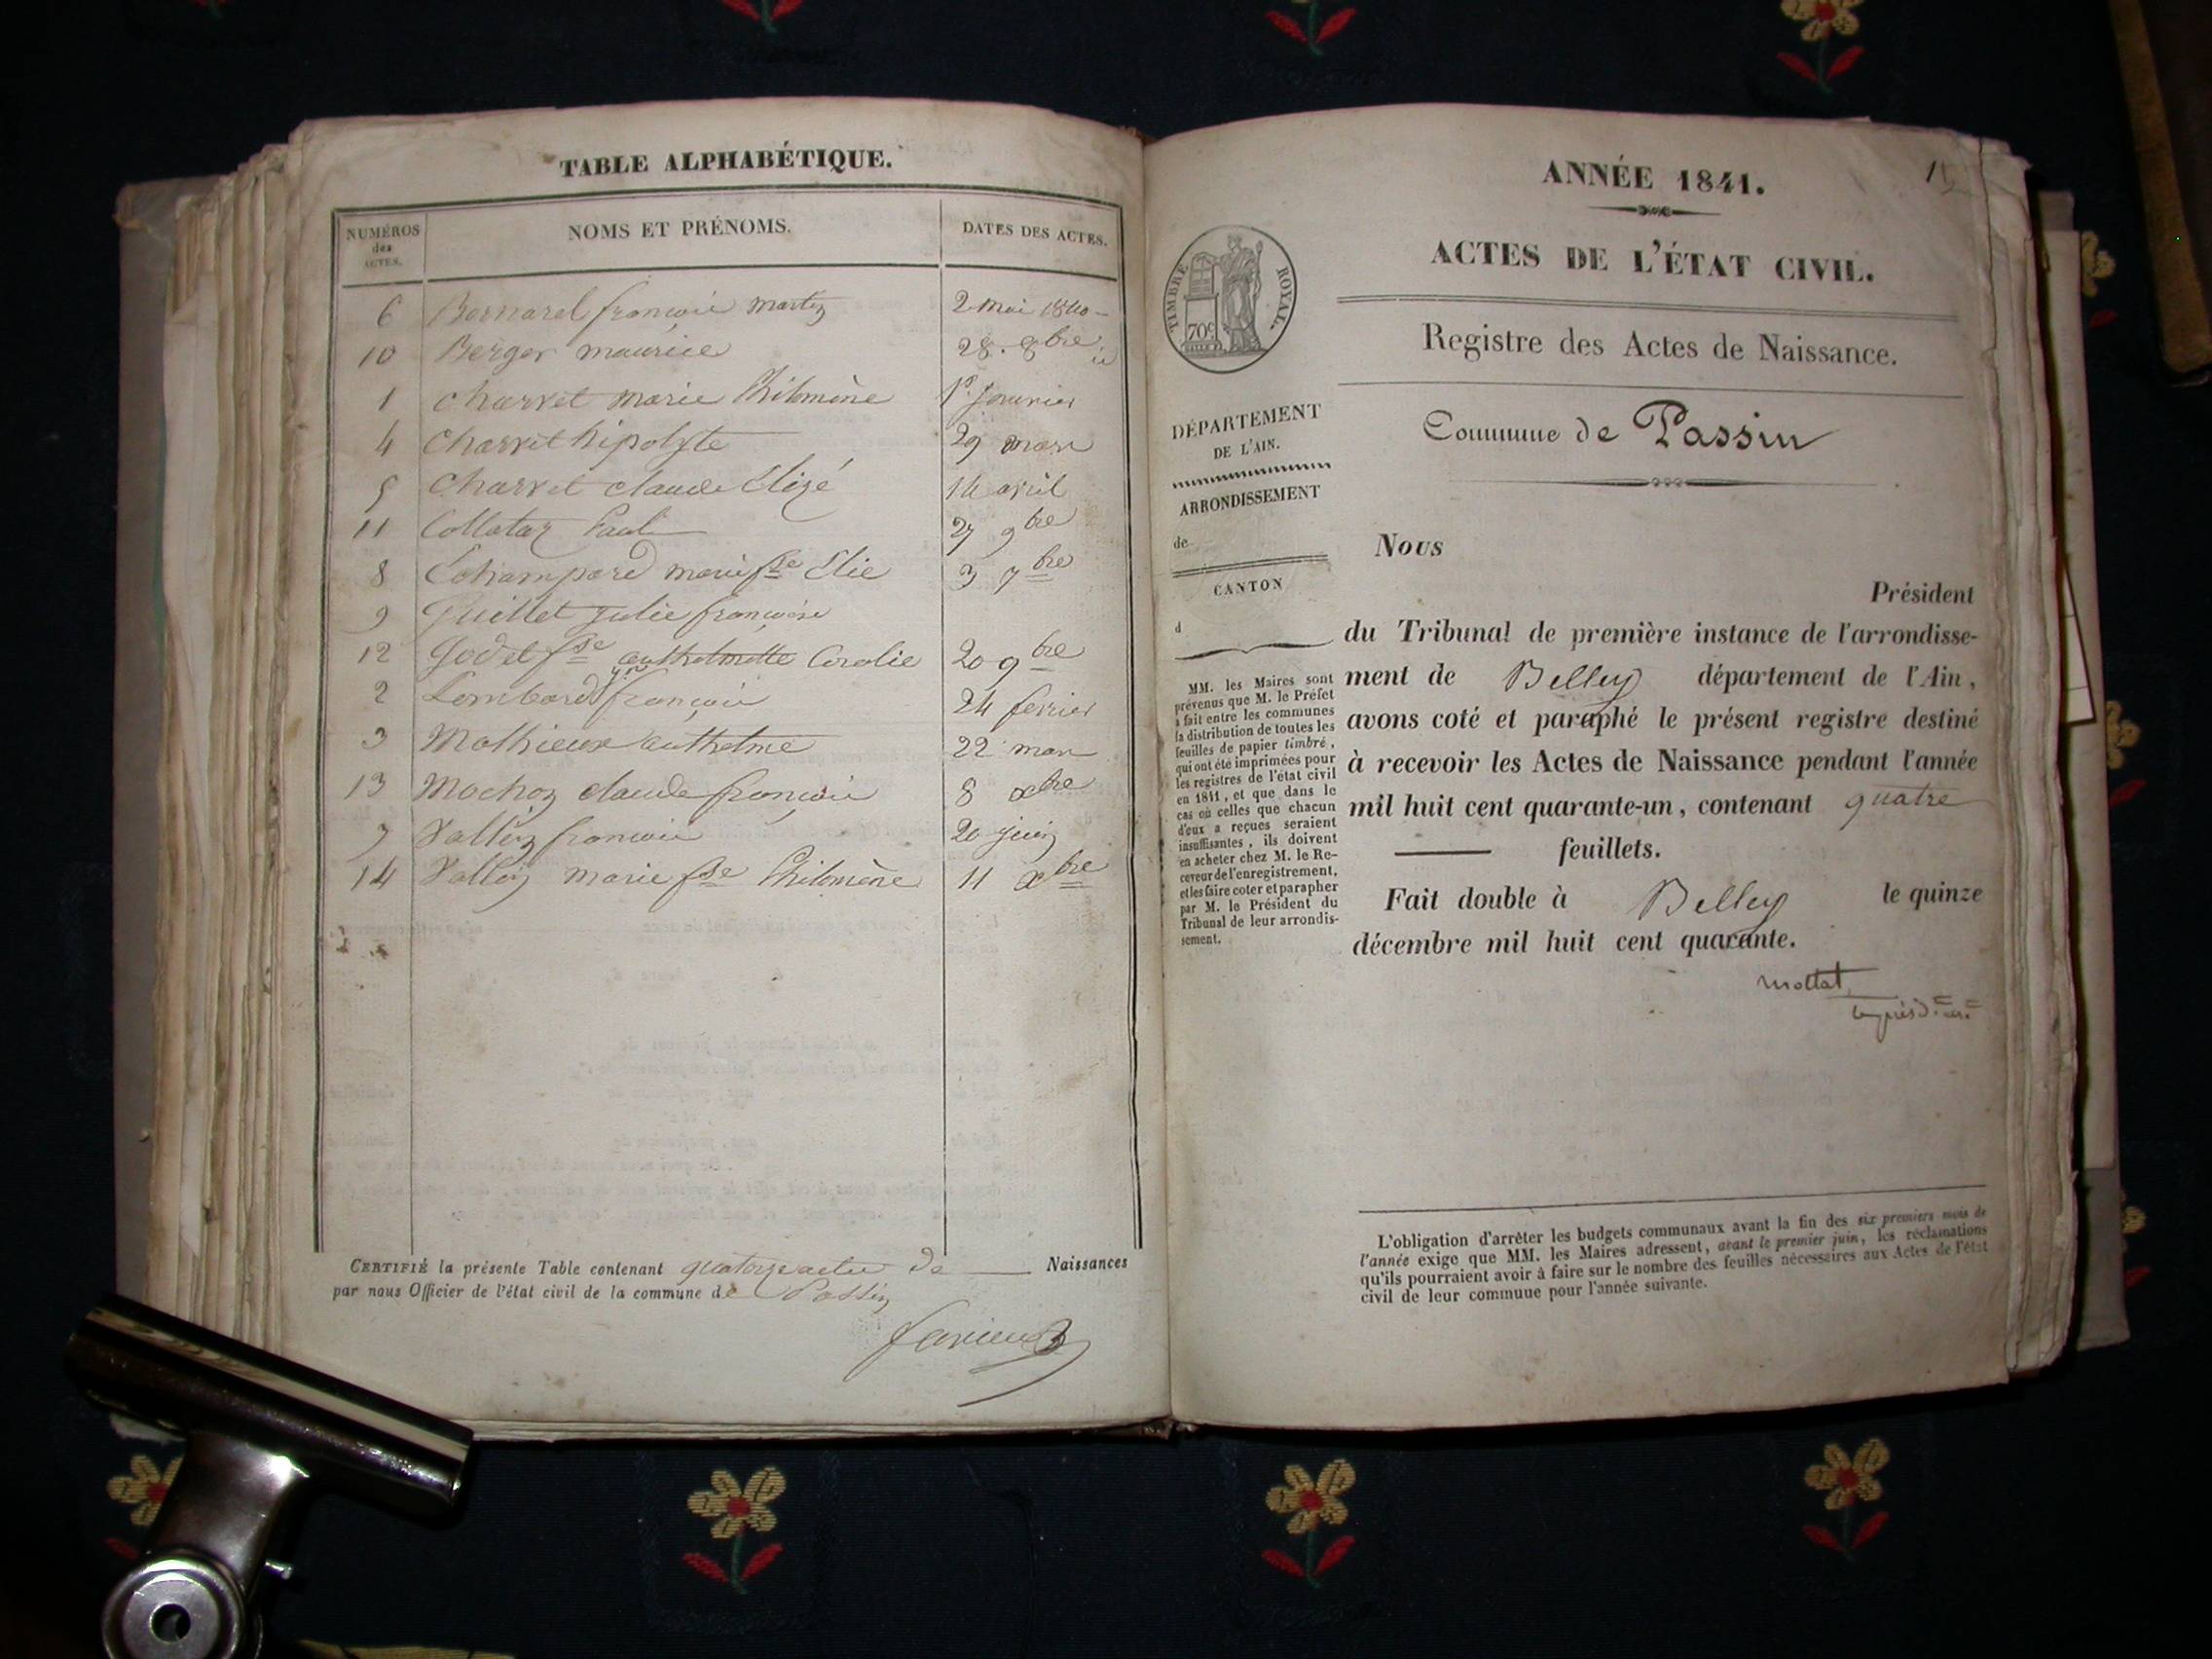 TABLE ALPHABÉTIQUE.
NUMÉROS des ACTES. NOMS ET PRÉNOMS. DATES DES ACTES.
6 Bornarel françois martin 2 mai 1840
10 Berger maurice 28. 8bre
1 charvet marie Philomène 1er janvier
4 Charvet hipolyte 29 mars
5 Charvet claude Elizé 14 avril
11 Collotaz Paul 27 9bre
8 Echampard marie fse Elie 3 7bre
9 Guillet julie françoise
12 Godet fse anthelmette Coralie 20 9bre
2 Lombard françois 24 fevrier
3 Mathieux anthelme 22 mars
13 Mochon claude françois 8 xbre
7 Vallin françois 20 juin
14 Vallin marie fse Philomène 11 xbre
CERTIFIÉ la présente Table contenant quatorze actes de Naissances
par nous Officier de l'état civil de la commune de Passin
15
ANNÉE 1841.
ACTES DE L'ÉTAT CIVIL.
TIMBRE ROYAL.
70c
Registre des Actes de Naissance.
Commune de Passin
DÉPARTEMENT
DE L'AIN.
ARRONDISSEMENT
de
CANTON
d
MM. les Maires sont
prévenus que M. le Préfet
a fait entre les communes
la distribution de toutes les
feuilles de papier timbré,
qui ont été imprimées pour
les registres de l'état civil
en 1841, et que dans le
cas où celles que chacun
d'eux a reçues seraient
insuffisantes, ils doivent
en acheter chez M. le Re-
ceveur de l'enregistrement,
et les faire coter et parapher
par M. le Président du
Tribunal de leur arrondis-
sement.
Nous
Président
du Tribunal de première instance de l'arrondisse-
ment de Belley département de l'Ain,
avons coté et paraphé le présent registre destiné
à recevoir les Actes de Naissance pendant l'année
mil huit cent quarante-un, contenant quatre
feuillets.
Fait double à Belley le quinze
décembre mil huit cent quarante.
mollat
L'obligation d'arrêter les budgets communaux avant la fin des six premiers mois de
l'année exige que MM. les Maires adressent, avant le premier juin, les réclamations
qu'ils pourraient avoir à faire sur le nombre des feuilles nécessaires aux Actes de l'état
civil de leur commune pour l'année suivante.